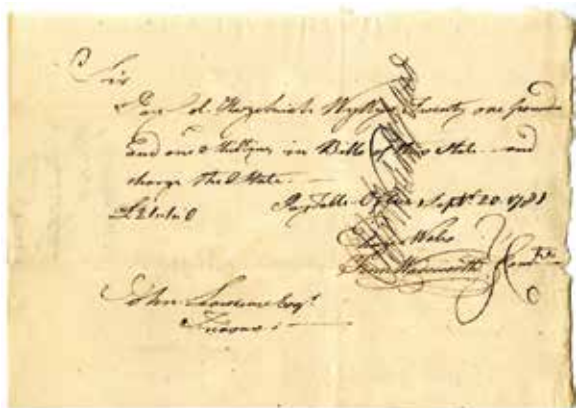 Sir
Pay Col. Hezekiah Wyllys Twenty one pounds
and one Shilling in Bills of this State and
charge the State.
£21..1..0 Pay Table Office Sept. 20. 1781
Fenn Wadsworth Comtee
John Lawrence Esqr.
Treasurer